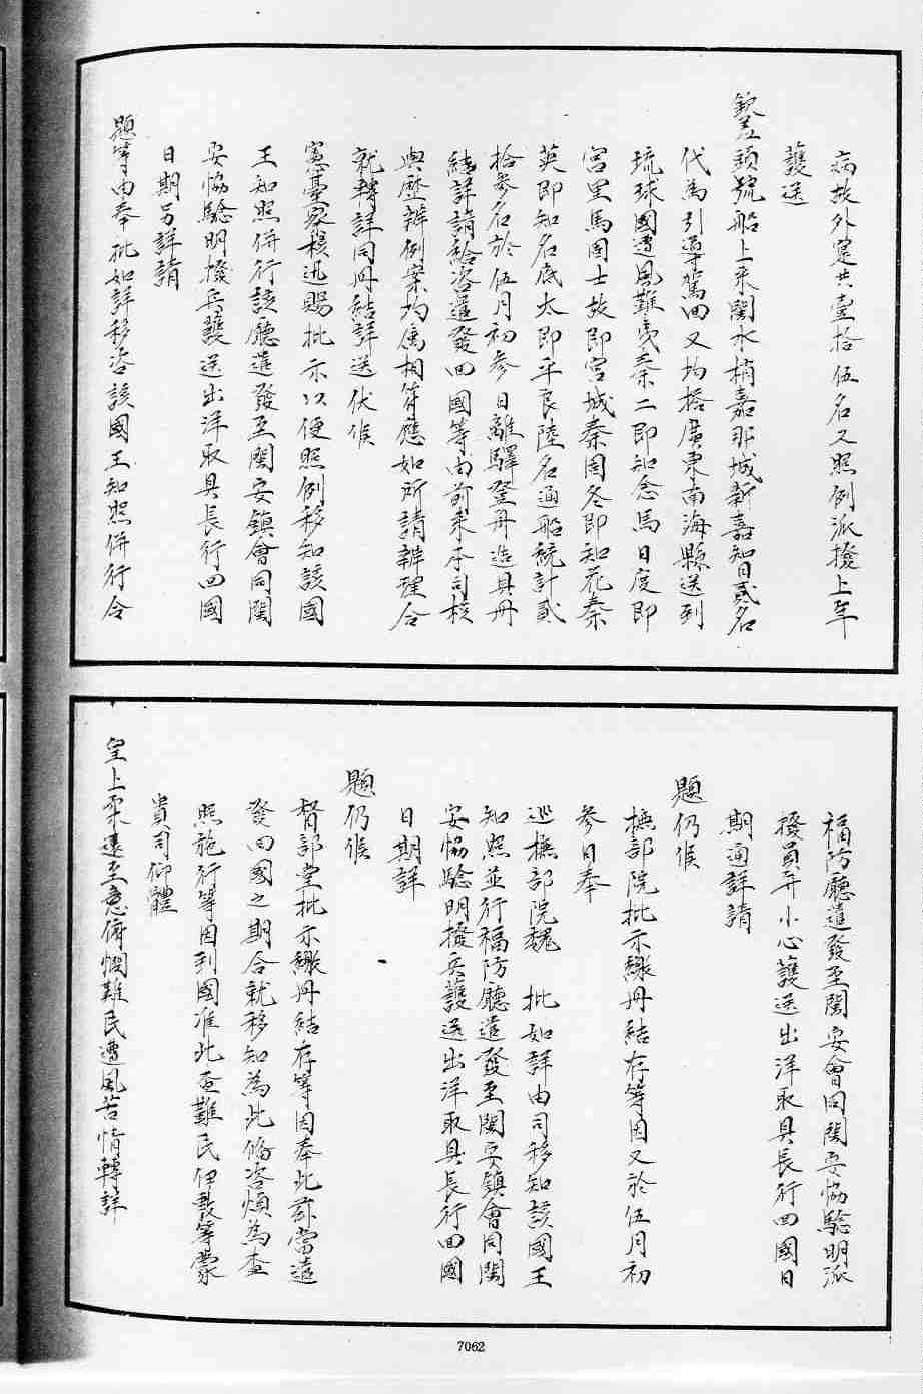 病故外寔共壹拾伍名又照例派撥上年
護送
欽差頭號船上來閩水梢嘉那城新嘉知日貳名
代為引導駕回又均搭廣東南海縣送到
琉球國遭風難夷秦二即知念馬日度即
宮里馬國士故即宮城秦國冬即知花秦
英即知名底太即平良陸名通船統計貳
拾參名於伍月初參日離驛登舟造具冊
結詳請給咨遣發回國等由前來本司核
與歷辦例案均屬相符應如所請辦理合
就轉詳同冊結詳送伏候
憲臺察核迅賜批示以便照例移知該國
王知照併行該廳遣發至閩安鎮會同閩
安協驗明撥兵護送出洋取具長行回國
日期另詳請
題等由奉批如詳移咨該國王知照併行令
福防廳遣發至閩安會同閩安協驗明派
撥員弁小心護送出洋取具長行回國日
期通詳請
題仍候
撫部院批示繳冊結存等因又於伍月初
參日奉
巡撫部院魏 批如詳由司移知該國王
知照並行福防廳遣發至閩安鎮會同閩
安協驗明撥兵護送出洋取具長行回國
日期詳
題仍候
督部堂批示繳冊結存等因奉此茲當遣
發回國之期合就移知為此備咨煩為查
照施行等因到國准此查難民伊裴等蒙
貴司仰體
皇上柔遠至意俯憫難民遭風苦情轉詳
7062